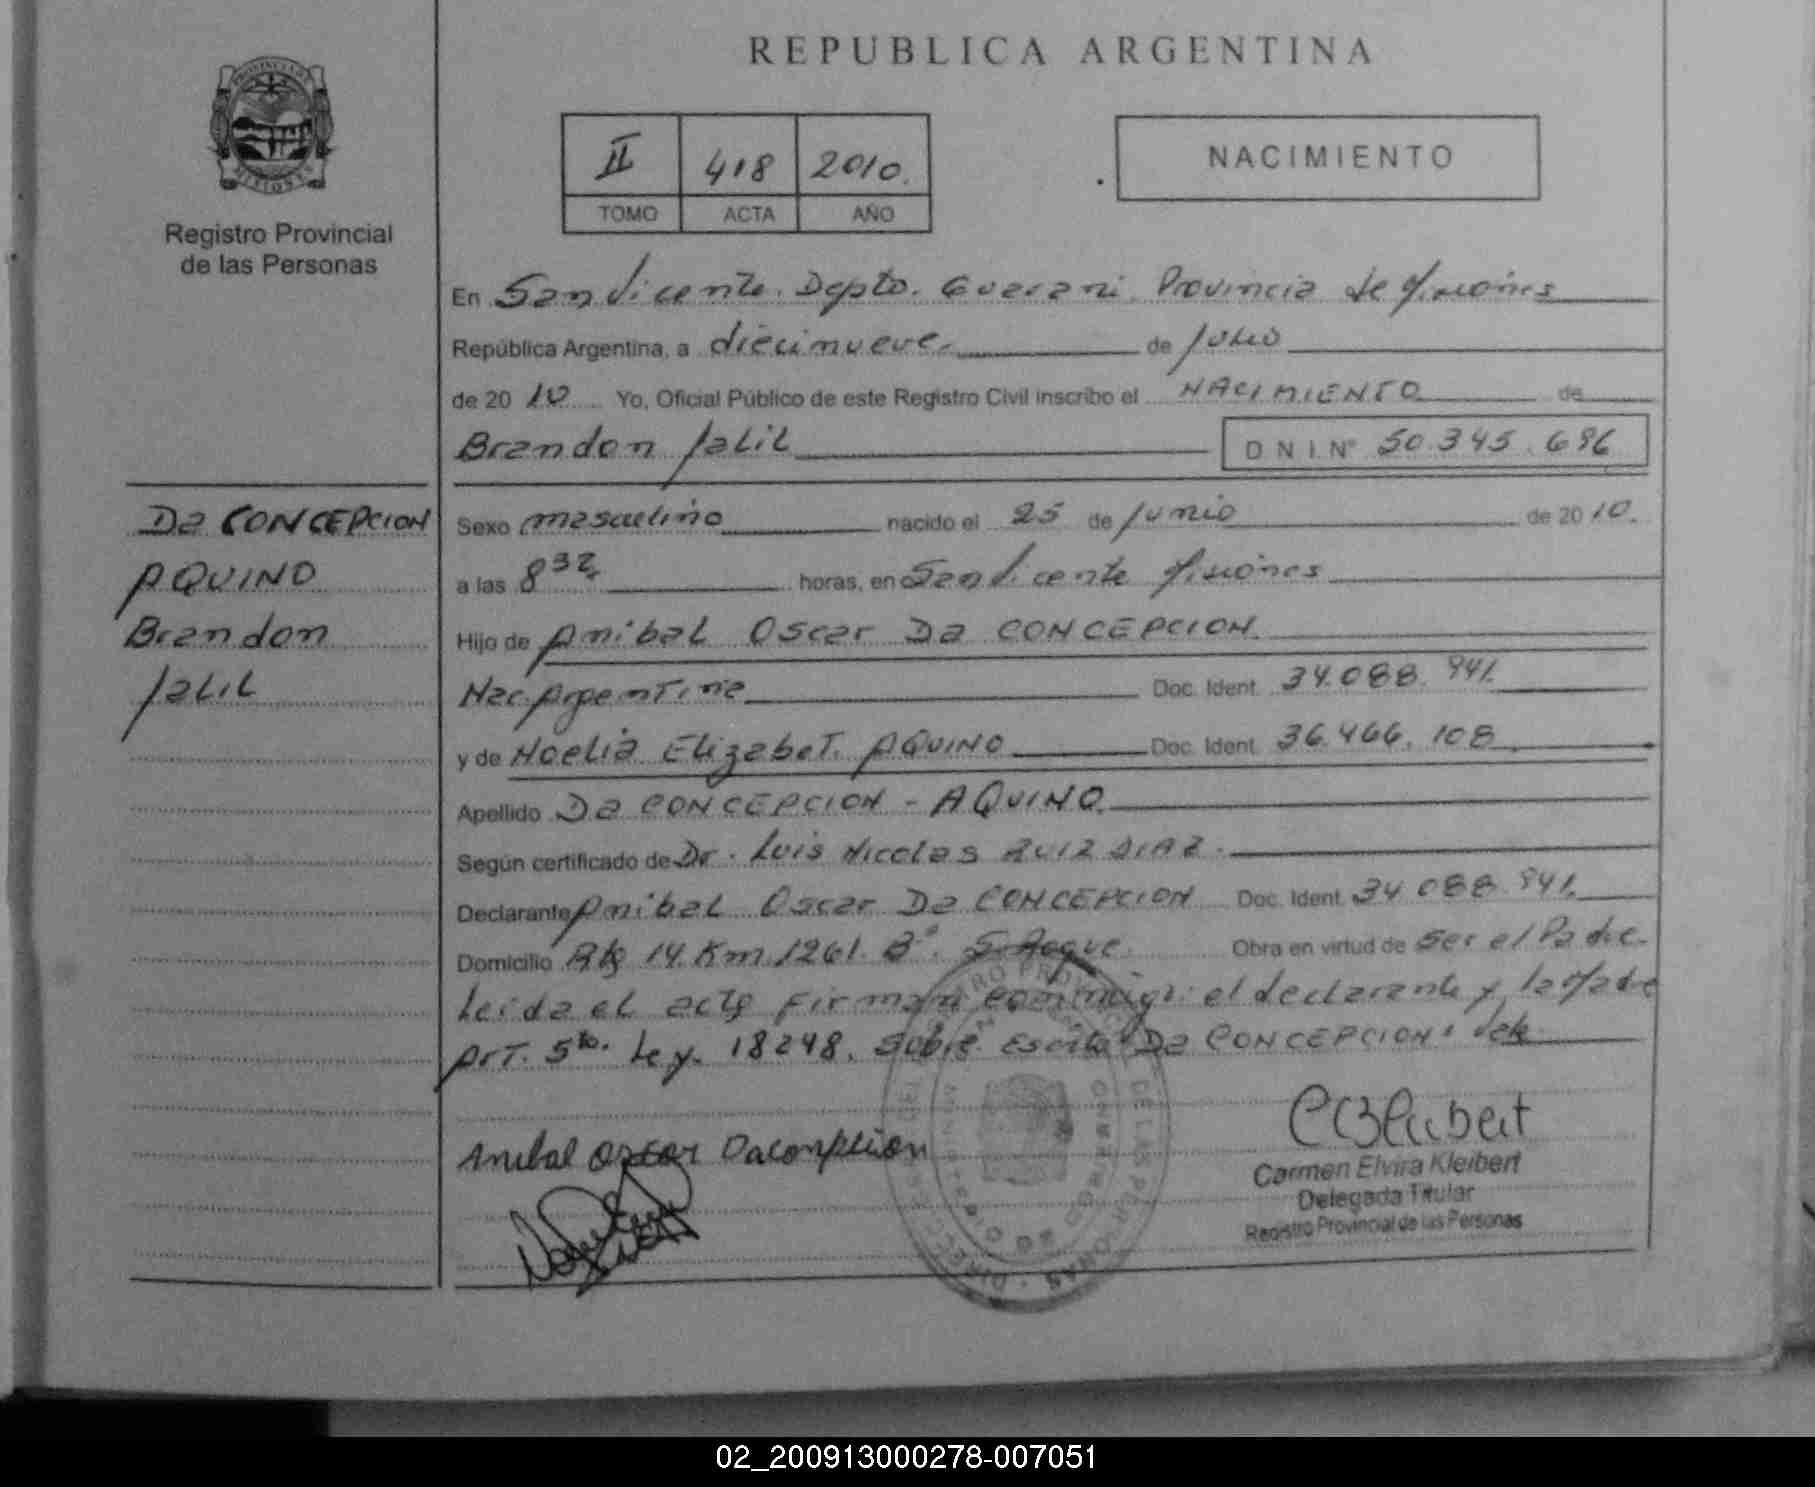 REPUBLICA ARGENTINA
PROVINCIA DE
MISIONES
Registro Provincial
de las Personas
II 418 2010.
TOMO ACTA AÑO
NACIMIENTO
En San Vicente. Depto. Guarani. Provincia de Misiones
República Argentina, a diecinueve. de Julio
de 2010 Yo, Oficial Público de este Registro Civil inscribo el NACIMIENTO de
Brandon Jalil D N I Nº 50.345.696
DA CONCEPCION
AQUINO
Brandon
Jalil
Sexo masculino nacido el 25 de Junio de 2010.
a las 8 32 horas, en San Vicente Misiones
Hijo de Anibal Oscar Da CONCEPCION.
Nac. Argentina Doc. Ident. 34.088.941.
y de Noelia Elizabet. AQUINO Doc. Ident. 36.466.108.
Apellido Da CONCEPCION - AQUINO.
Según certificado de Dr. Luis Nicolas RUIZ DIAZ.
Declarante Anibal Oscar Da CONCEPCION Doc. Ident. 34.088.941.
Domicilio Rta 14. Km 1261. Bº. S. Roque. Obra en virtud de Ser el Padre.
Leida el acta firman conmigo: el declarante y la Madre
Art. 5to. Ley. 18248. Sobre Escrito "Da CONCEPCION": Vale
Anibal Oscar Daconpcion
Carmen Elvira Kleibert
Delegada Titular
Registro Provincial de las Personas
02_200913000278-007051